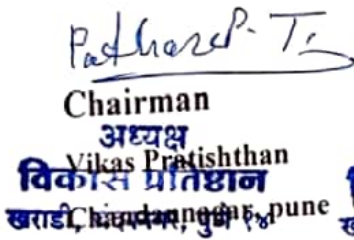 Pathare P. T.
Chairman
अध्यक्ष
Vikas Pratishthan
विकास प्रतिष्ठान
Chandannagar, pune
खराडी, पुणे १४